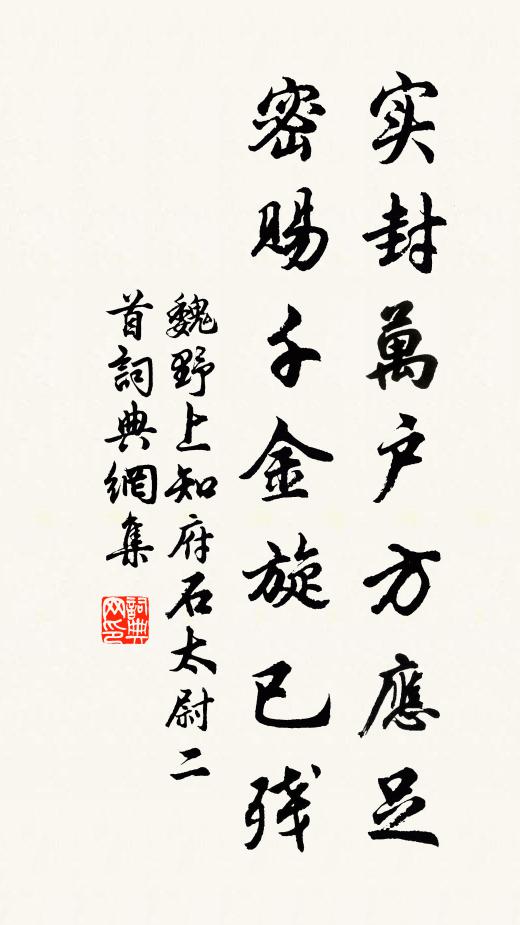 实封萬户方應足
密赐千金旋已残
魏野上知府石太尉二
首詞典網集
詞典
网印